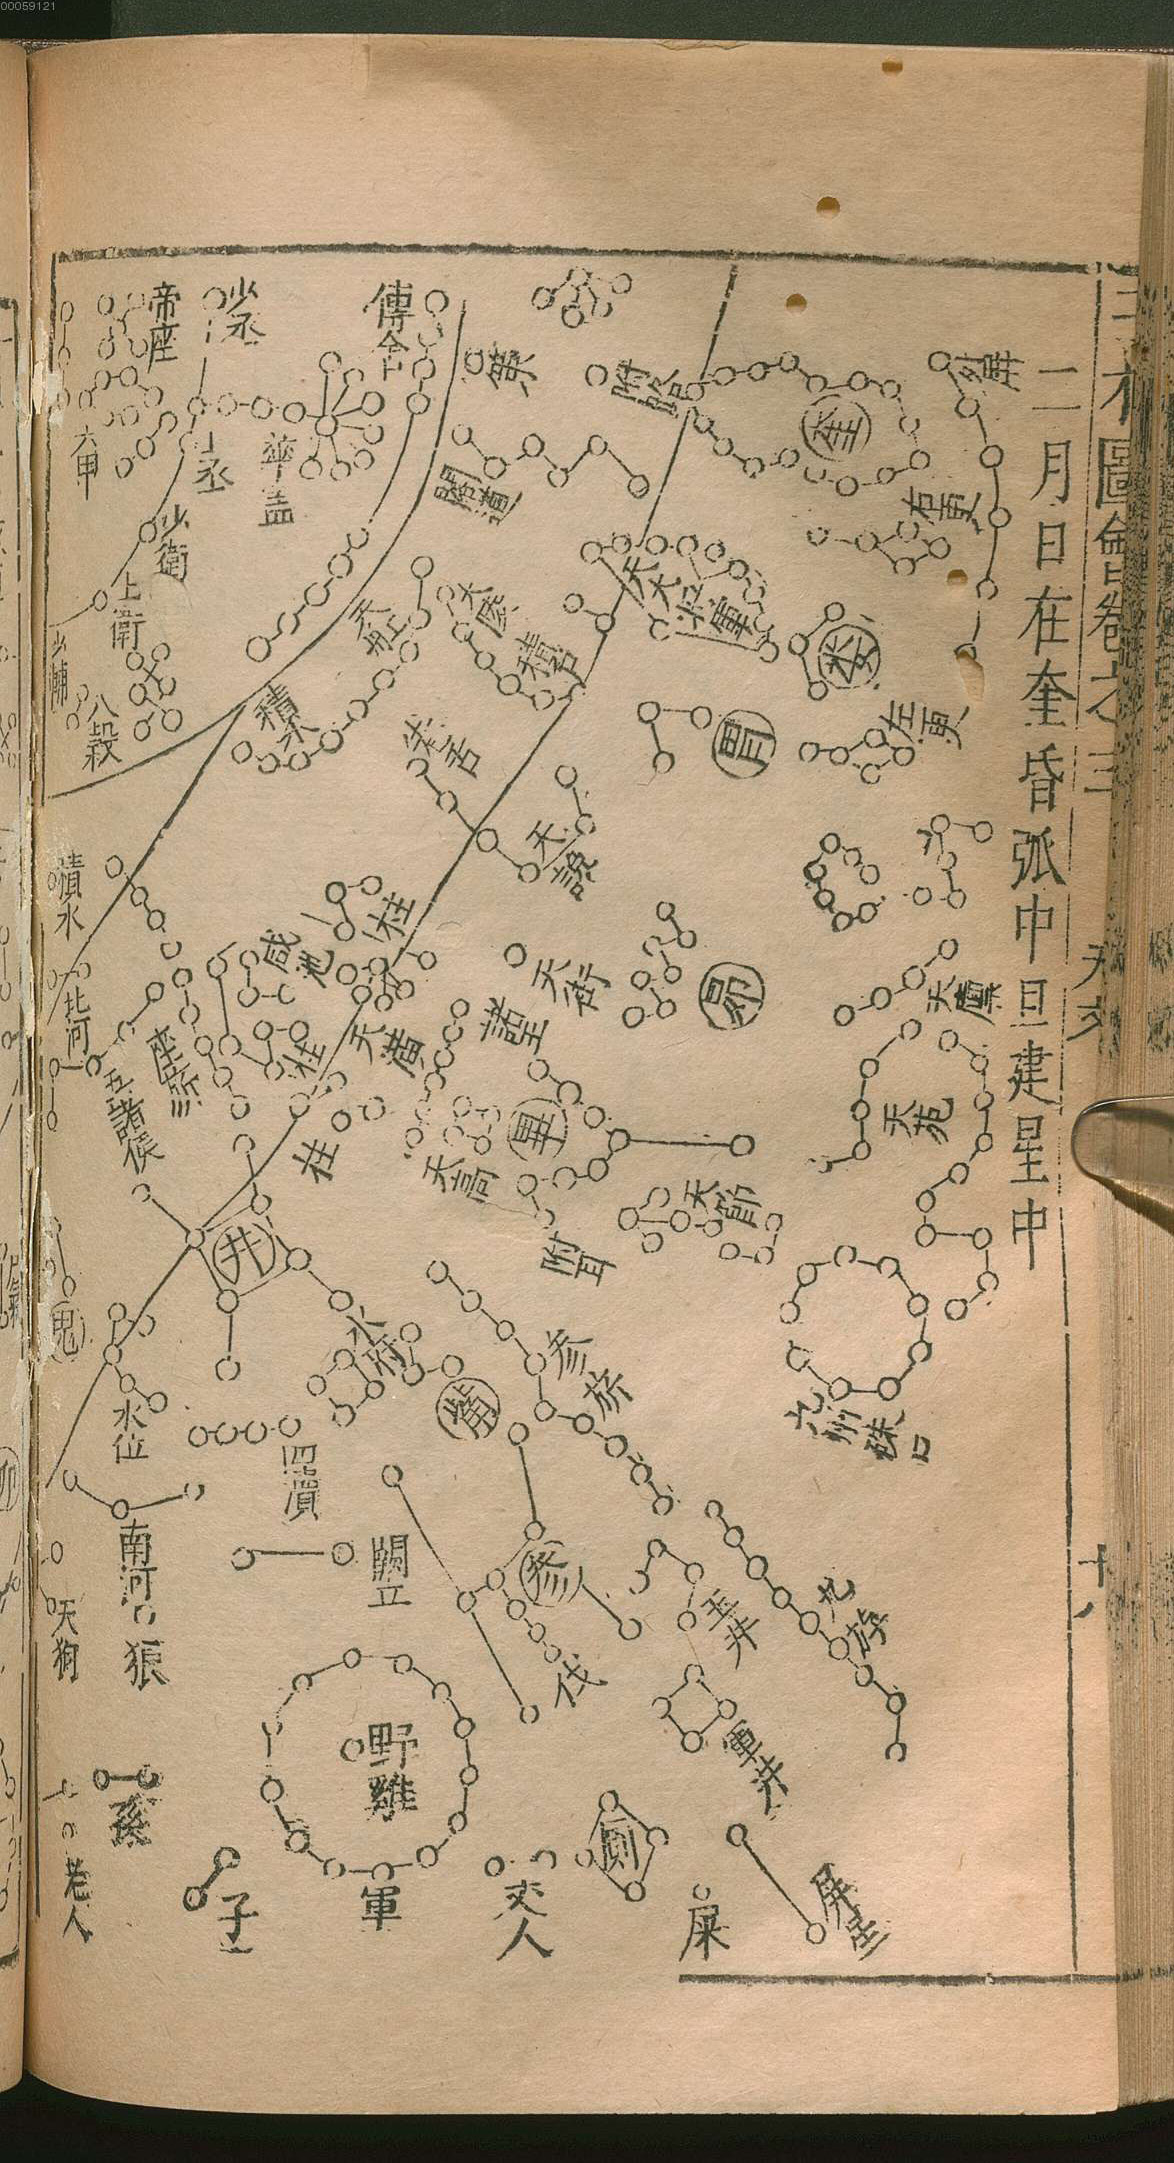 00059121
三才圖會卷之三
天文
十八
二月日在奎昏弧中旦建星中
外屏
奎
附路
策
傳舍
帝座
六甲
華盖
閣道
右更
少衛
上衛
少輔
八穀
天船
積水
大陵
積尸
天大將軍
婁
左更
胃
積水
北河
五諸侯
座旗
咸池
柱
柱
柱
諸王
天高
畢
昴
附耳
天節
天廩
天苑
九州殊口
井
鬼
水位
水府
四瀆
觜
參旗
參
伐
玉井
軍井
九斿
南河
狼
天狗
野雞
軍
孫
子
老人
丈人
廁
屎
屏星